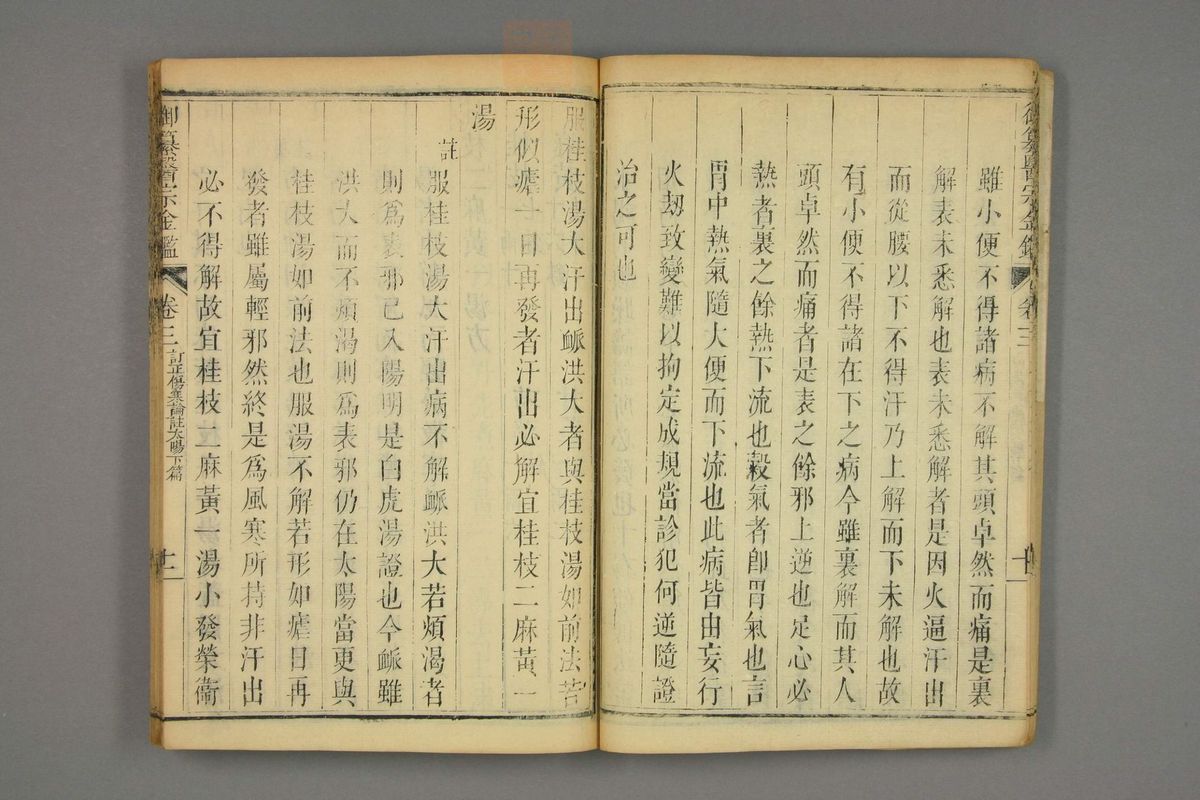 雖小便不得諸病不解其頭卓然而痛是裏
解表未悉解也表未悉解者是因火逼汗出
而從腰以下不得汗乃上解而下未解也故
有小便不得諸在下之病今雖裏解而其人
頭卓然而痛者是表之餘邪上逆也足心必
熱者裏之餘熱下流也穀氣者卽胃氣也言
胃中熱氣隨大便而下流也此病皆由妄行
火刼致變難以拘定成規當診犯何逆隨證
治之可也
服桂枝湯大汗出脈洪大者與桂枝湯如前法若
形似瘧一日再發者汗出必解宜桂枝二麻黃一
湯
註 服桂枝湯大汗出病不解脈洪大若煩渴者
則爲表邪已入陽明是白虎湯證也今脈雖
洪大而不煩渴則爲表邪仍在太陽當更與
桂枝湯如前法也服湯不解若形如瘧日再
發者雖屬輕邪然終是爲風寒所持非汗出
必不得解故宜桂枝二麻黃一湯小發榮衞
御纂醫宗金鑑 卷三 訂正傷寒論註太陽下篇 十一